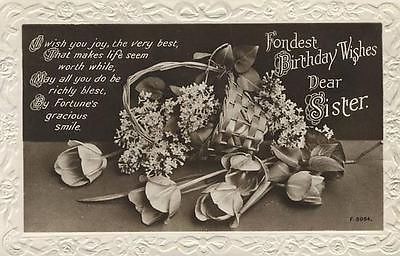 I wish you joy, the very best,
That makes life seem
worth while,
May all you do be
richly blest,
By fortune's
gracious
smile.
Fondest
Birthday Wishes
Dear
Sister.